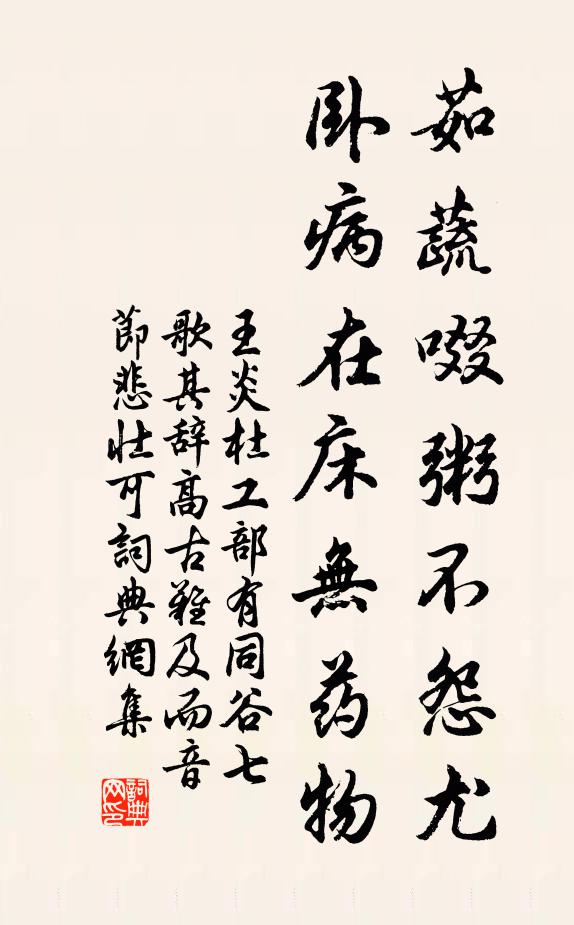 茹蔬啜粥不怨尤
卧病在床無药物
王炎杜工部有同谷七
歌其辞高古難及而音
節悲壮可詞典網集
詞典
网印